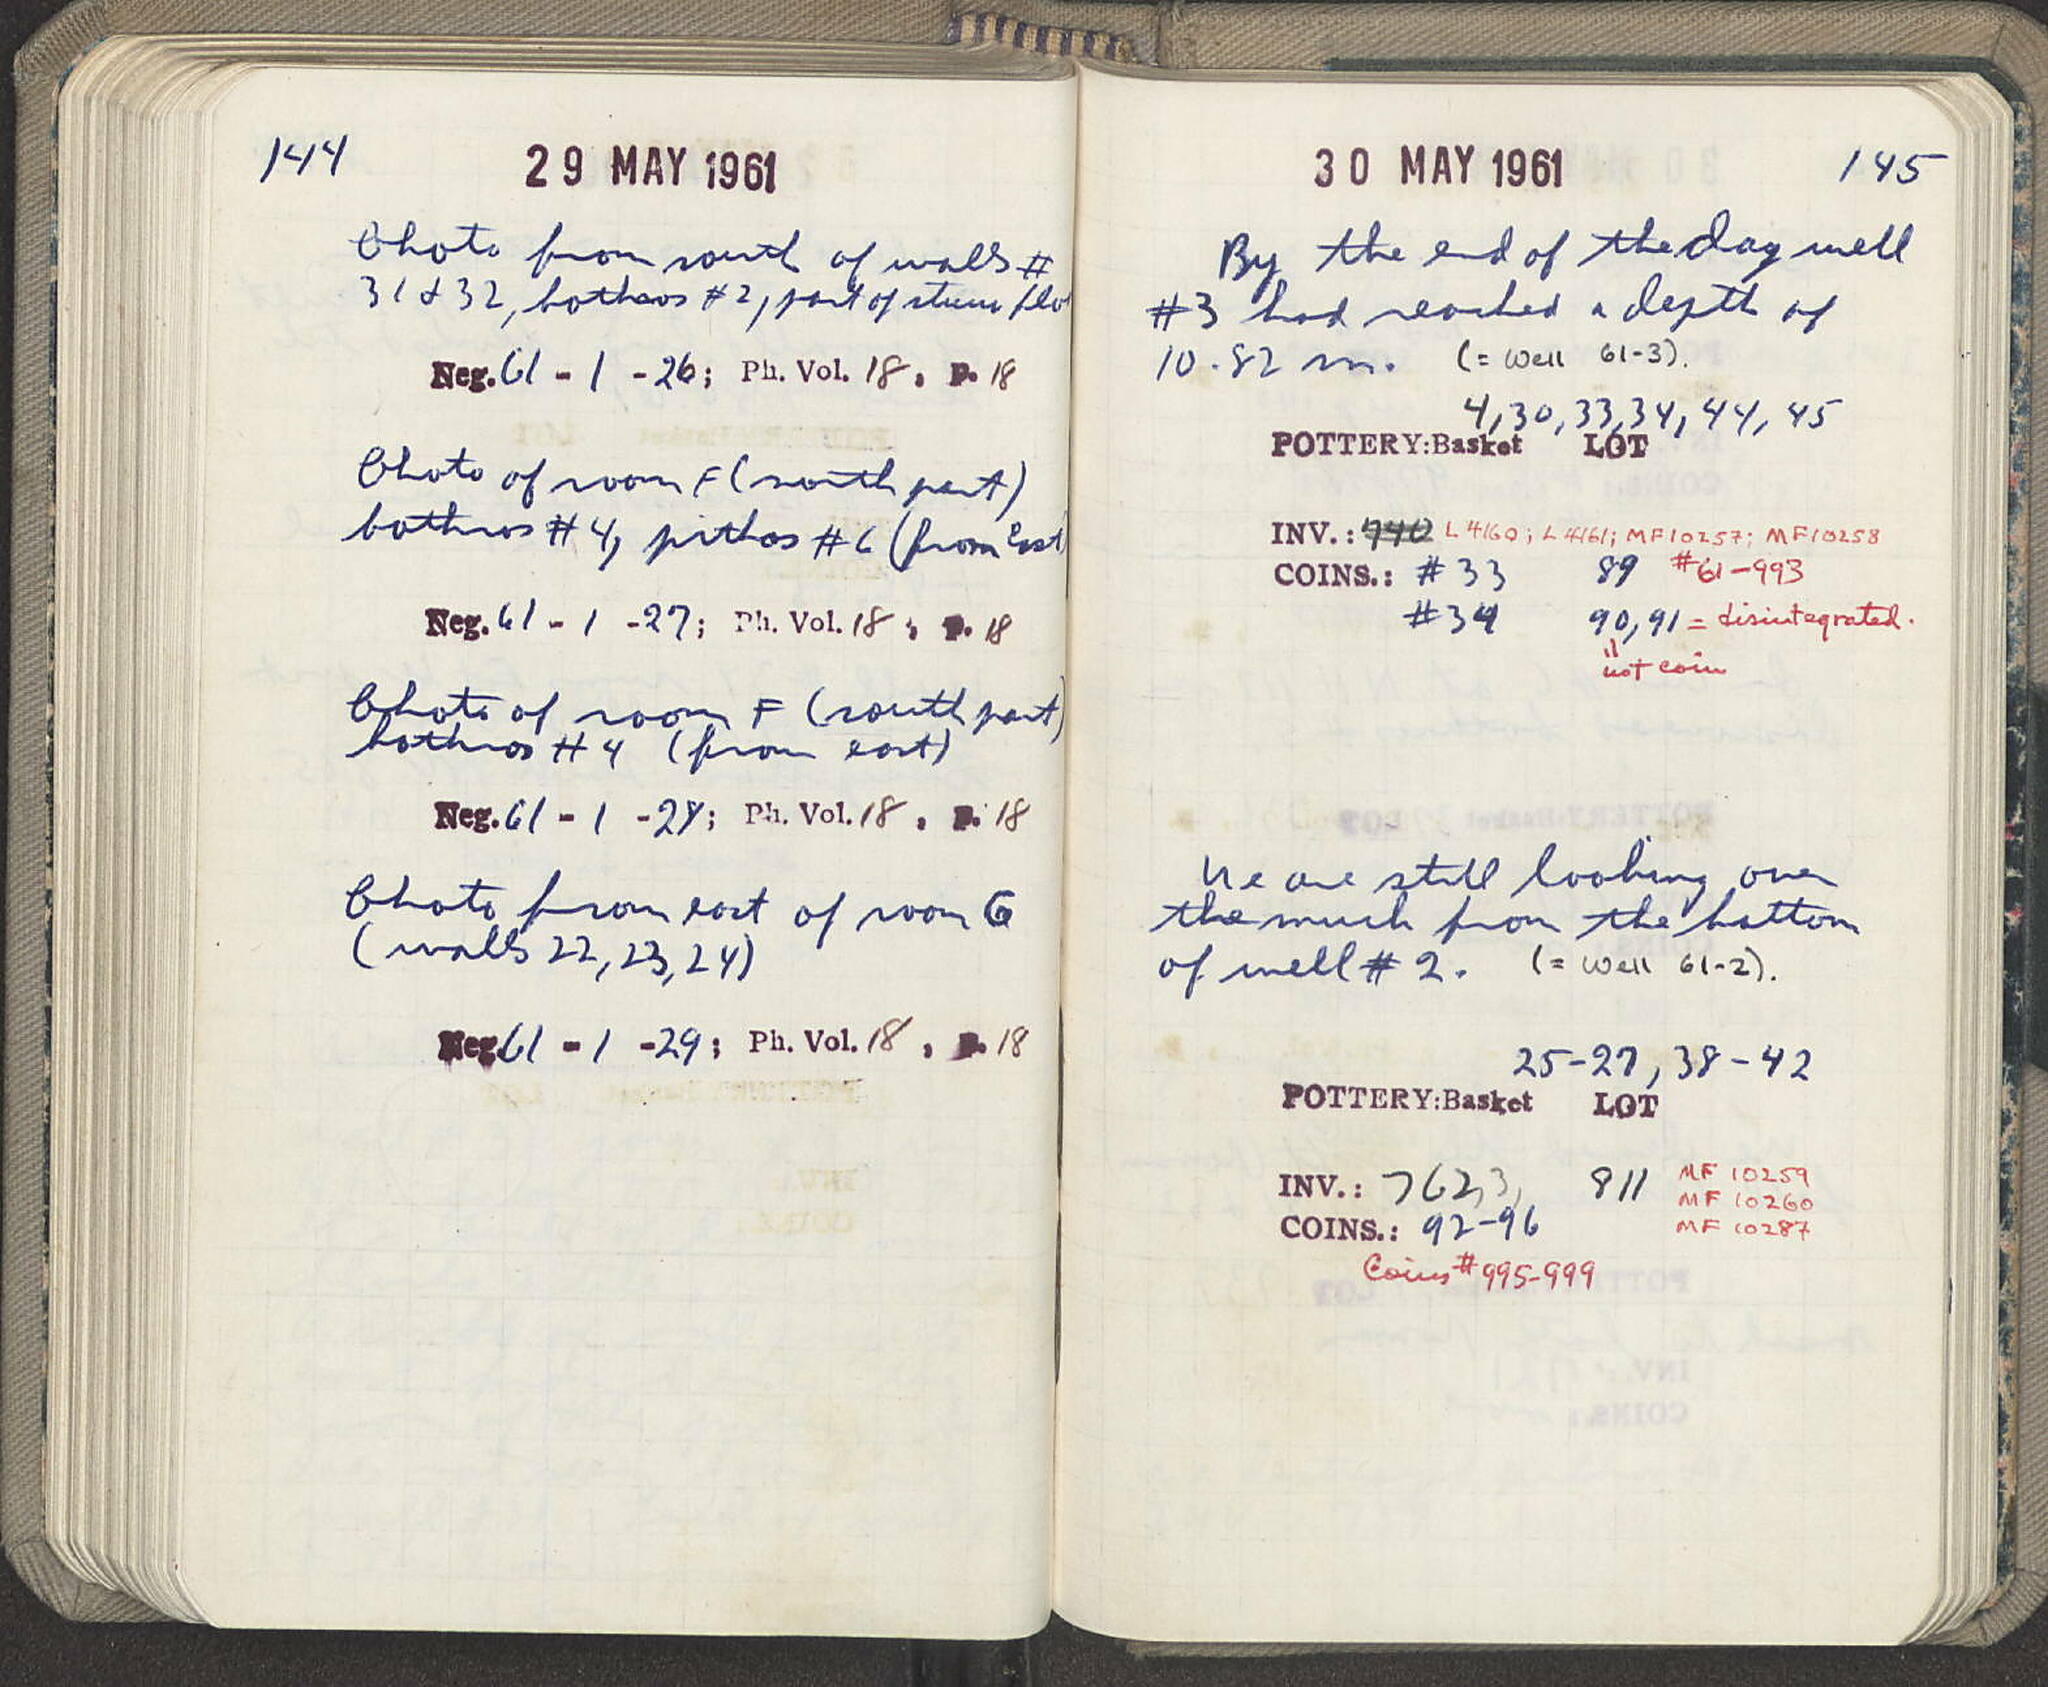 144
29 MAY 1961
Photo from south of walls #
31 & 32, bothros #2, part of
Neg. 61 - 1 - 26; Ph. Vol. 18, p. 18
Photo of room F (south part)
bothros #4, pithos #6 (from East)
Neg. 61 - 1 - 27; Ph. Vol. 18, p. 18
Photo of room F (south part)
bothros #4 (from east)
Neg. 61 - 1 - 28; Ph. Vol. 18, p. 18
Photo from east of room G
(walls 22, 23, 24)
Neg. 61 - 1 - 29; Ph. Vol. 18, p. 18
30 MAY 1961
145
By the end of the day well
#3 had reached a depth of
10.82 m. (= Well 61-3).
4, 30, 33, 34, 44, 45
POTTERY: Basket LOT
INV.: 740 L 4160; L 4161; MF 10257; MF 10258
COINS.: #33 89 #61-993
#34 90, 91 = disintegrated.
not coin
We are still looking over
the much from the bottom
of well #2. (= Well 61-2).
25-27, 38-42
POTTERY: Basket LOT
INV.: 762, 3, 811 MF 10259
MF 10260
COINS.: 92-96 MF 10287
Coins #995-999